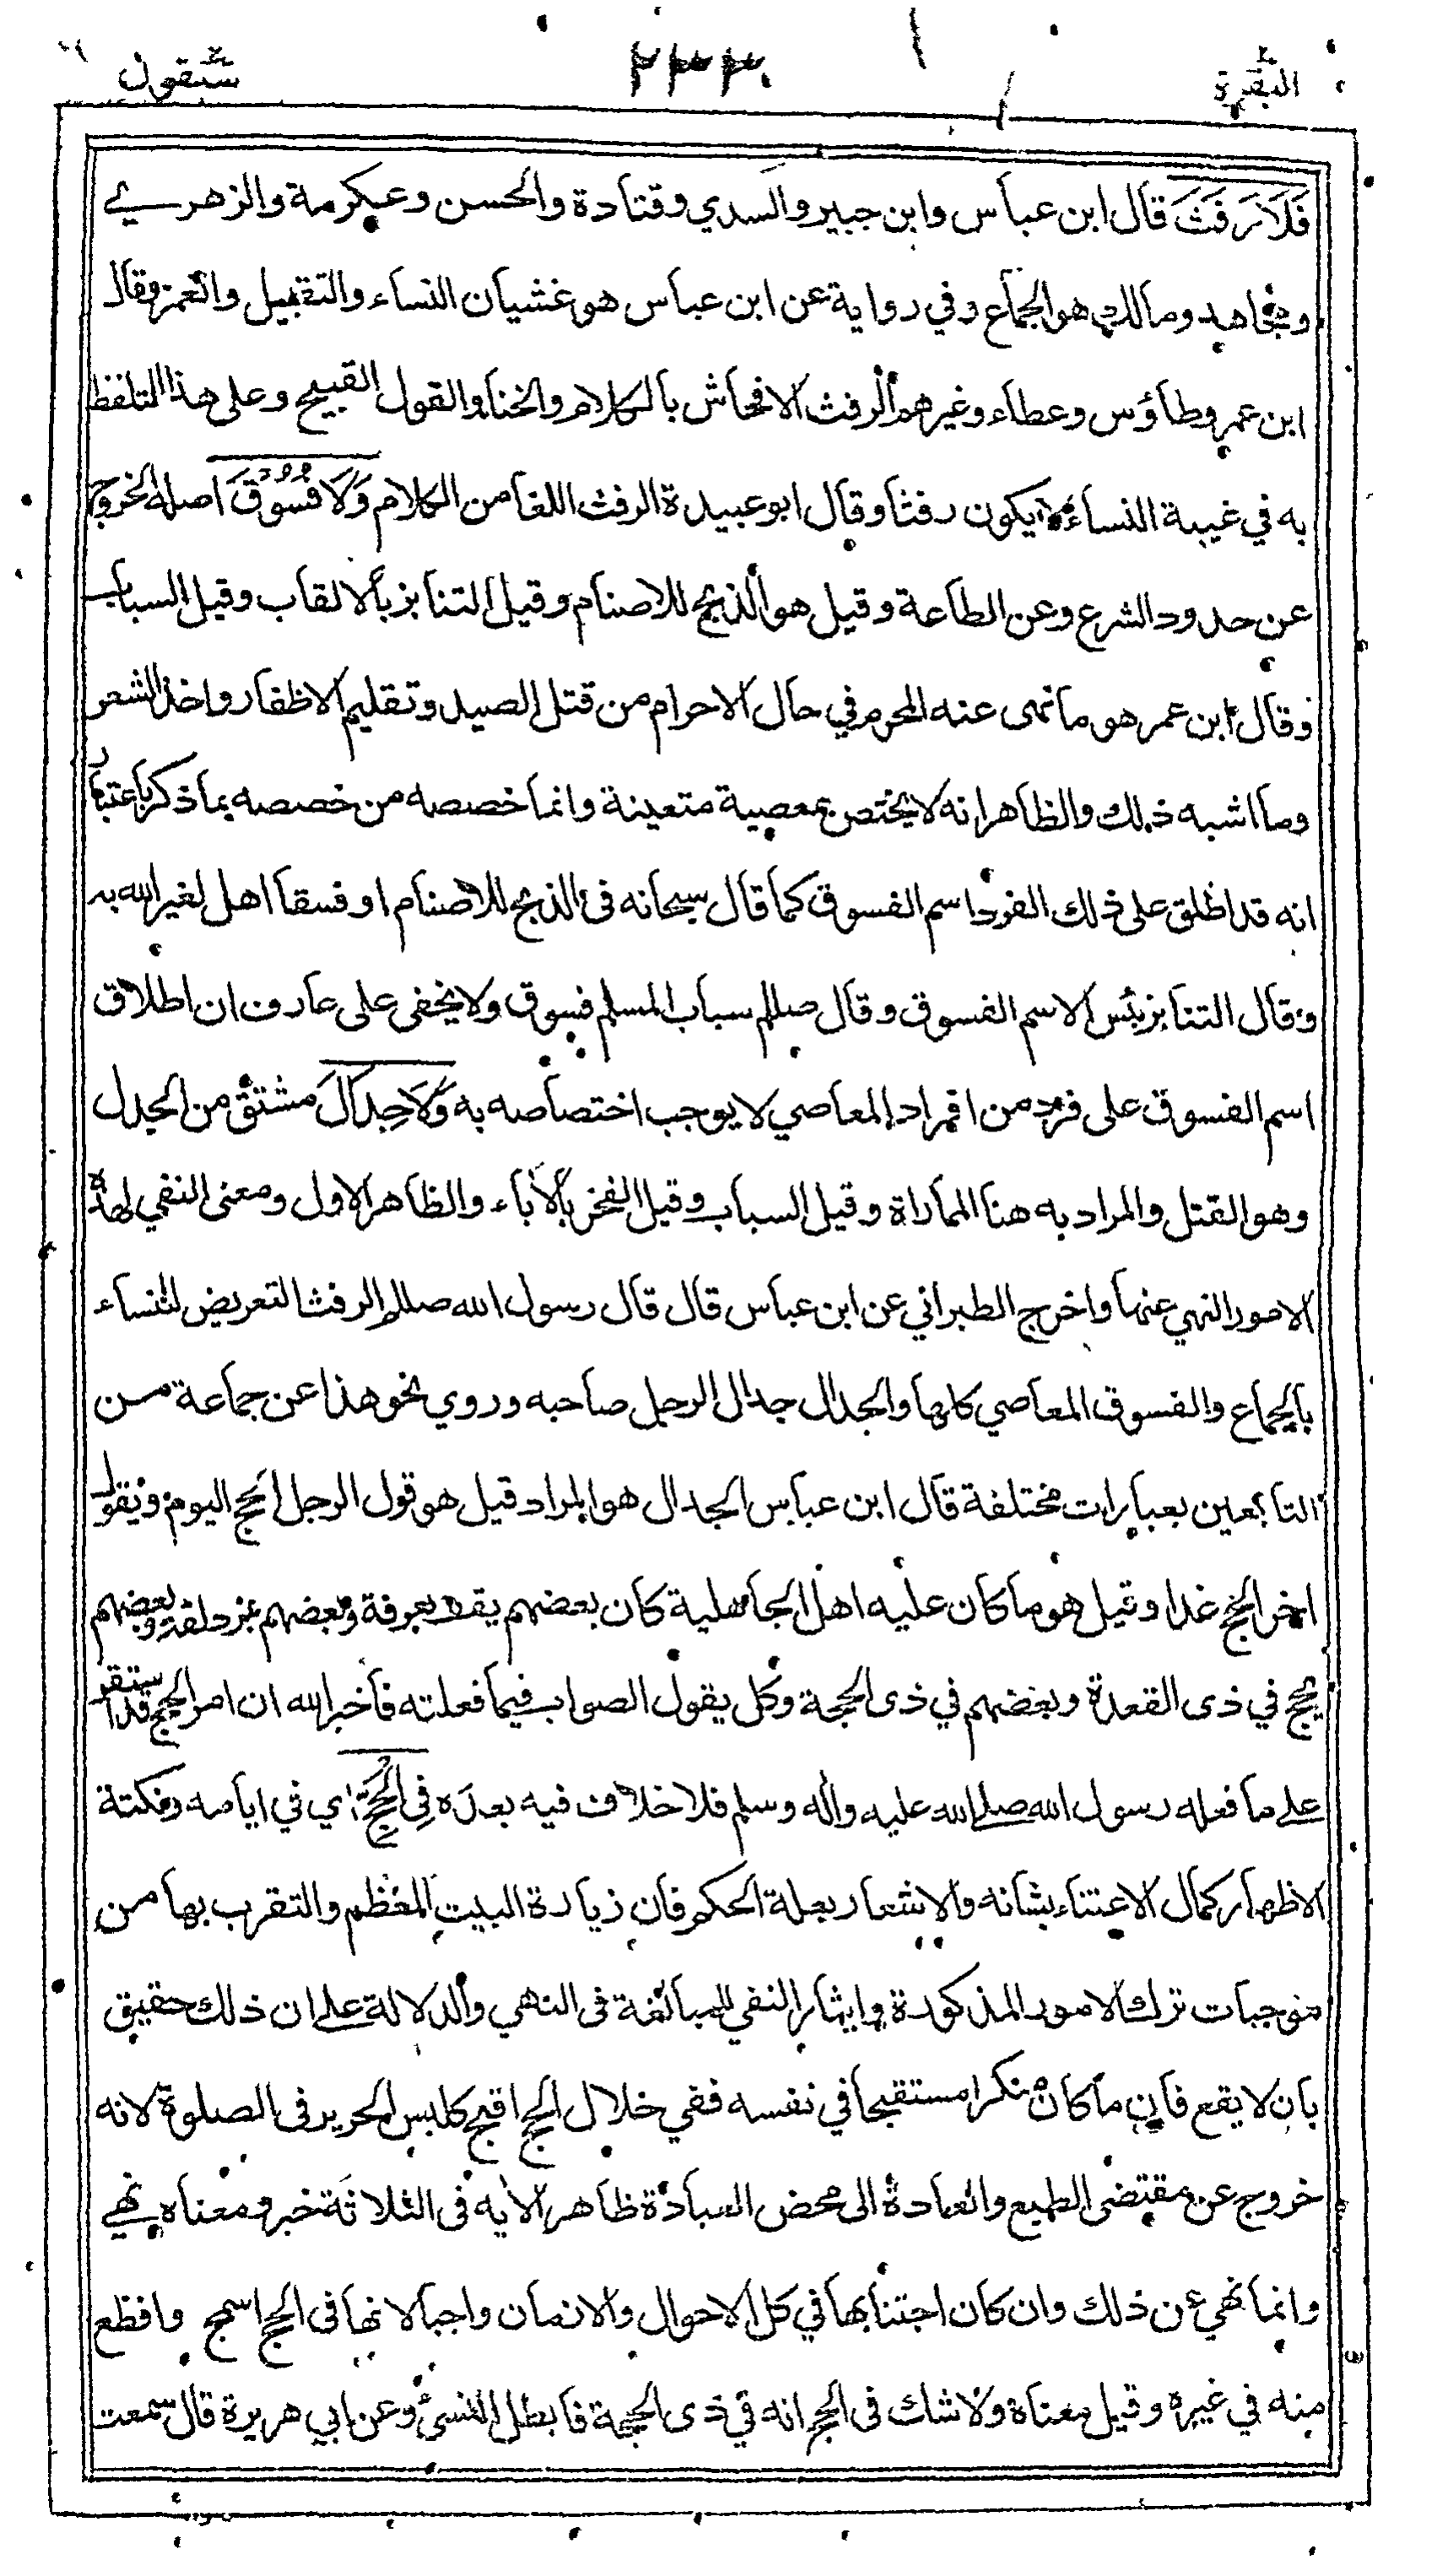 البقرة ٢٣٣ سيقول
فَلَا رَفَثَ قال ابن عباس وابن جبير والسدي وقتادة والحسن وعكرمة والزهري
ومجاهد ومالك هو الجماع وفي رواية عن ابن عباس هو غشيان النساء والتقبيل والغمز وقال
ابن عمر وطاؤس وعطاء وغيرهم الرفث الافحاش بالكلام والخنا والقول القبيح وعلى هذا التلفظ
به في غيبة النساء لا يكون رفثا وقال ابو عبيدة الرفث اللغا من الكلام وَلَا فُسُوْقَ اصله الخروج
عن حدود الشرع وعن الطاعة وقيل هو الذبح للاصنام وقيل التنابز بالالقاب وقيل السباب
وقال ابن عمر هو ما نهى عنه المحرم في حال الاحرام من قتل الصيد وتقليم الاظفار واخذ الشعر
وما اشبه ذلك والظاهر انه لا يختص بمعصية متعينة وانما خصصه من خصصه بما ذكر باعتبار
انه قد اطلق على ذلك الفرد اسم الفسوق كما قال سبحانه في الذبح للاصنام او فسقا اهل لغير الله به
وقال التنابز بئس الاسم الفسوق وقال صللم سباب المسلم فسوق ولا يخفى على عارف ان اطلاق
اسم الفسوق على فرد من افراد المعاصي لا يوجب اختصاصه به وَلَا جِدَالَ مشتق من الجدل
وهو القتل والمراد به هنا المماراة وقيل السباب وقيل الفخر بالأباء والظاهر الاول ومعنى النفي لهذه
الامور النهي عنها واخرج الطبراني عن ابن عباس قال قال رسول الله صللم الرفث التعريض للنساء
بالجماع والفسوق المعاصي كلها والجدال جدال الرجل صاحبه وروي نحو هذا عن جماعة من
التابعين بعبارات مختلفة قال ابن عباس الجدال هو المراد قيل هو قول الرجل الحج اليوم ويقول
اخر الحج غدا وقيل هو ما كان عليه اهل الجاهلية كان بعضهم يقف بعرفة وبعضهم بمزدلفة وبعضهم
يحج في ذى القعدة وبعضهم في ذى الحجة وكل يقول الصواب فيما فعلته فاخبر الله ان امر الحج قد استقر
على ما فعله رسول الله صلى الله عليه واله وسلم فلا خلاف فيه بعده فِي الْحَجِّ اي في ايامه ونكتة
الاظهار كمال الاعتناء بشانه والاشعار بعلة الحكم فان زيارة البيت المعظم والتقرب بها من
موجبات ترك الامور المذكورة وايثار النفي للمبالغة فى النهي والدلالة على ان ذلك حقيق
بان لا يقع فان ما كان منكرا مستقبحا في نفسه ففي خلال الحج اقبح كلبس الحرير فى الصلوة لانه
خروج عن مقتضى الطبع والعادة الى محض العبادة ظاهر الأيه فى الثلاثة خبر ومعناه نهي
وانما نهي عن ذلك وان كان اجتنابها في كل الاحوال والازمان واجبا لانها فى الحج اسمج وافظع
منه في غيره وقيل معناة ولا شك فى الحج انه في ذى الحجة فابطل النسئ وعن ابي هريرة قال سمعت